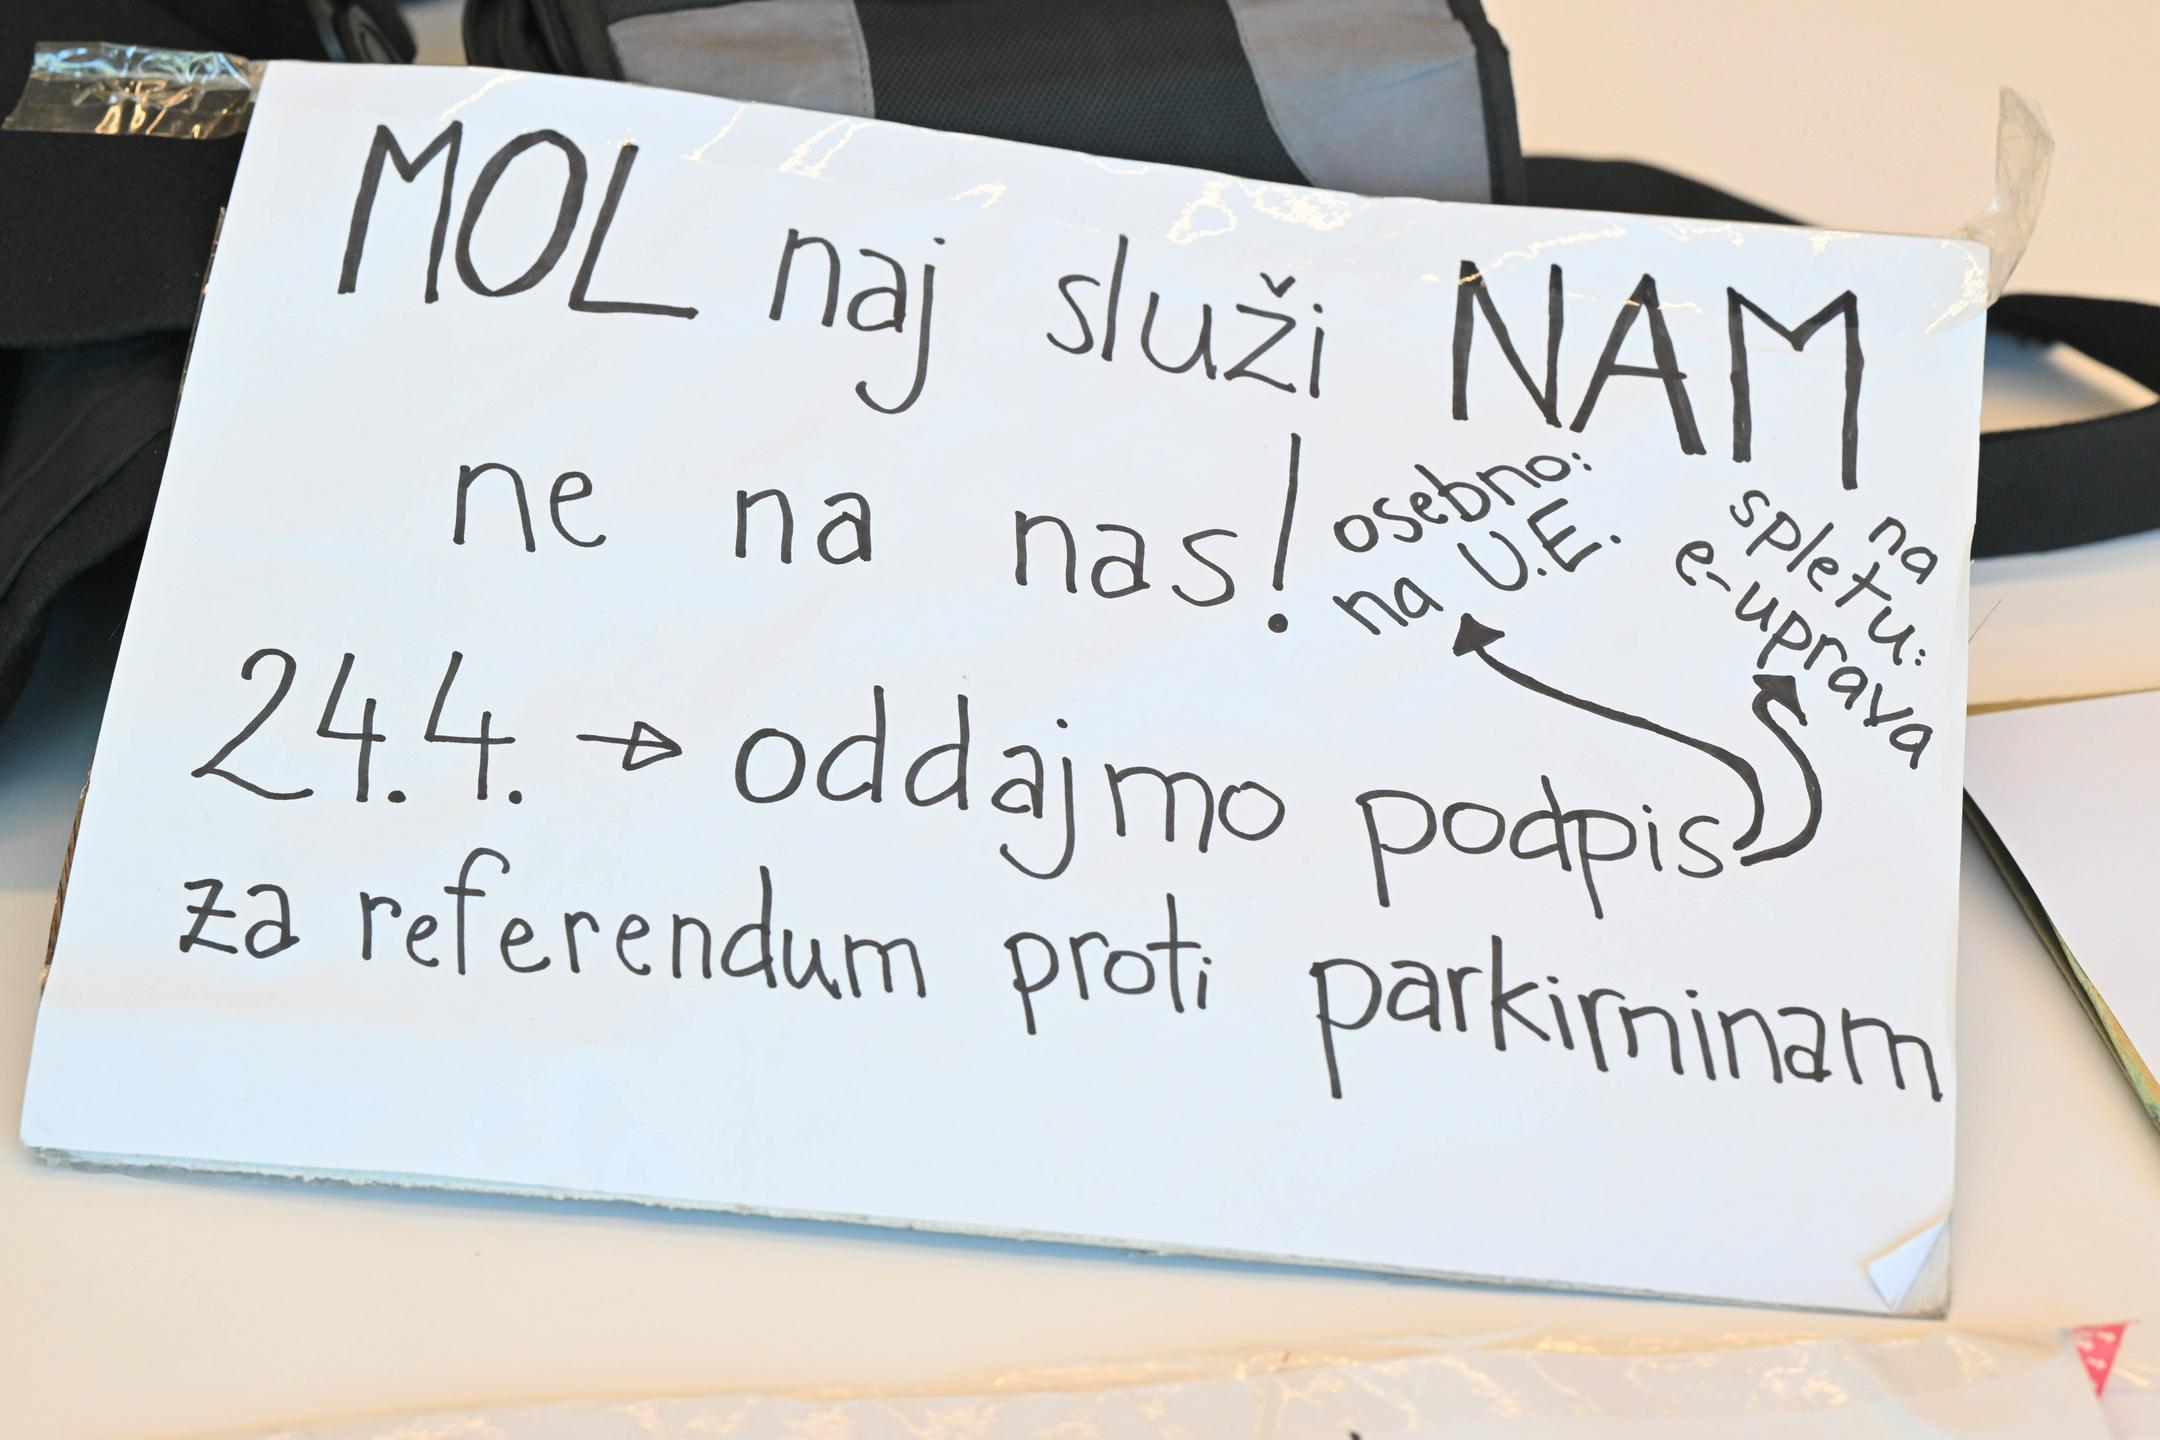 MOL naj služi NAM
ne na nas!
osebno:
na U.E.
na
spletu:
e-uprava
24.4. → oddajmo podpis
za referendum proti parkirninam